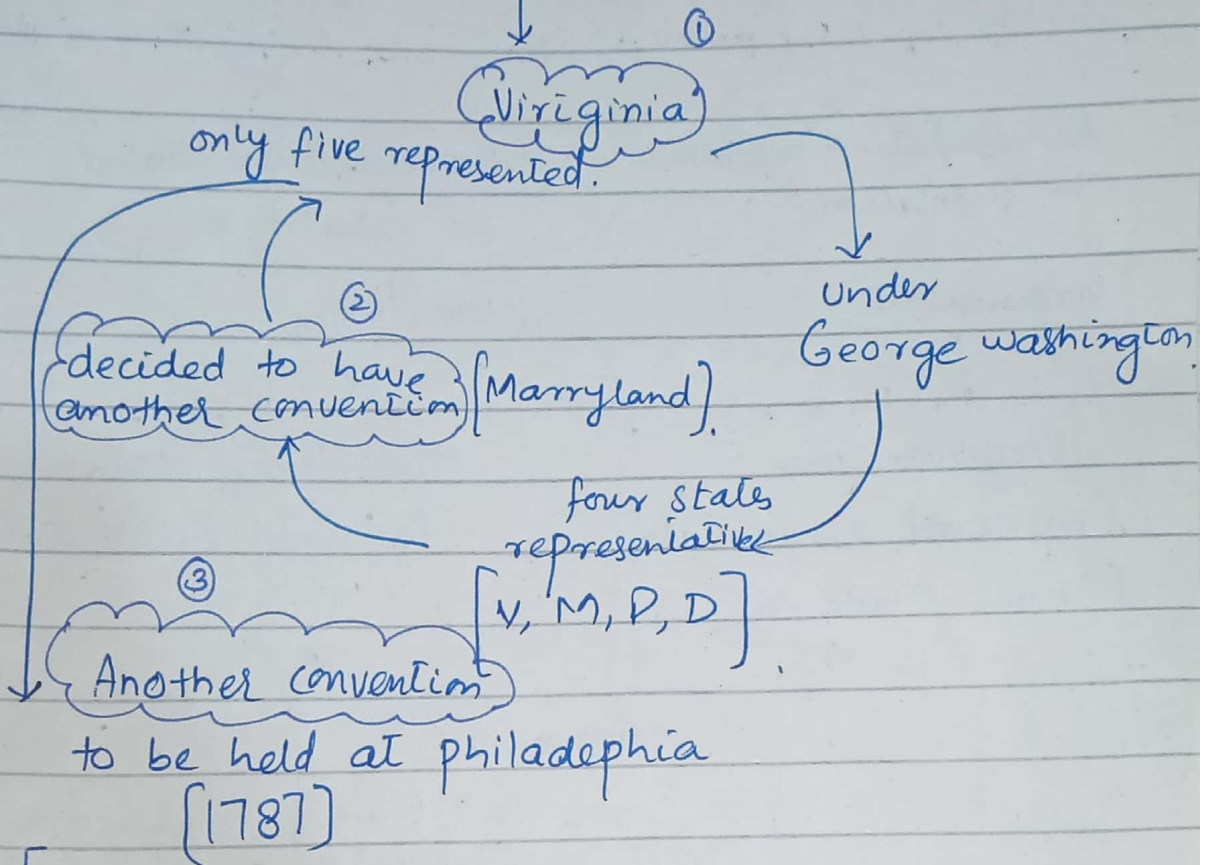 ①
Viriginia
only five represented.
under
George washington.
②
decided to have
another convention [Marryland].
four states
representatives
[V, M, P, D].
③
Another convention
to be held at philadephia
[1787]